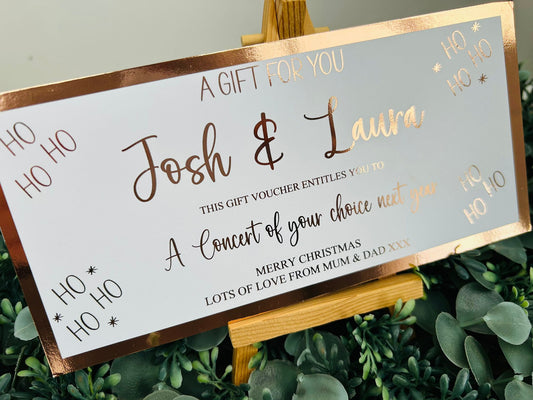 A GIFT FOR YOU
HO
HO
HO
HO
HO
HO
Josh & Laura
THIS GIFT VOUCHER ENTITLES YOU TO
A Concert of your choice next year
MERRY CHRISTMAS
LOTS OF LOVE FROM MUM & DAD XXX
HO
HO
HO
HO
HO
HO